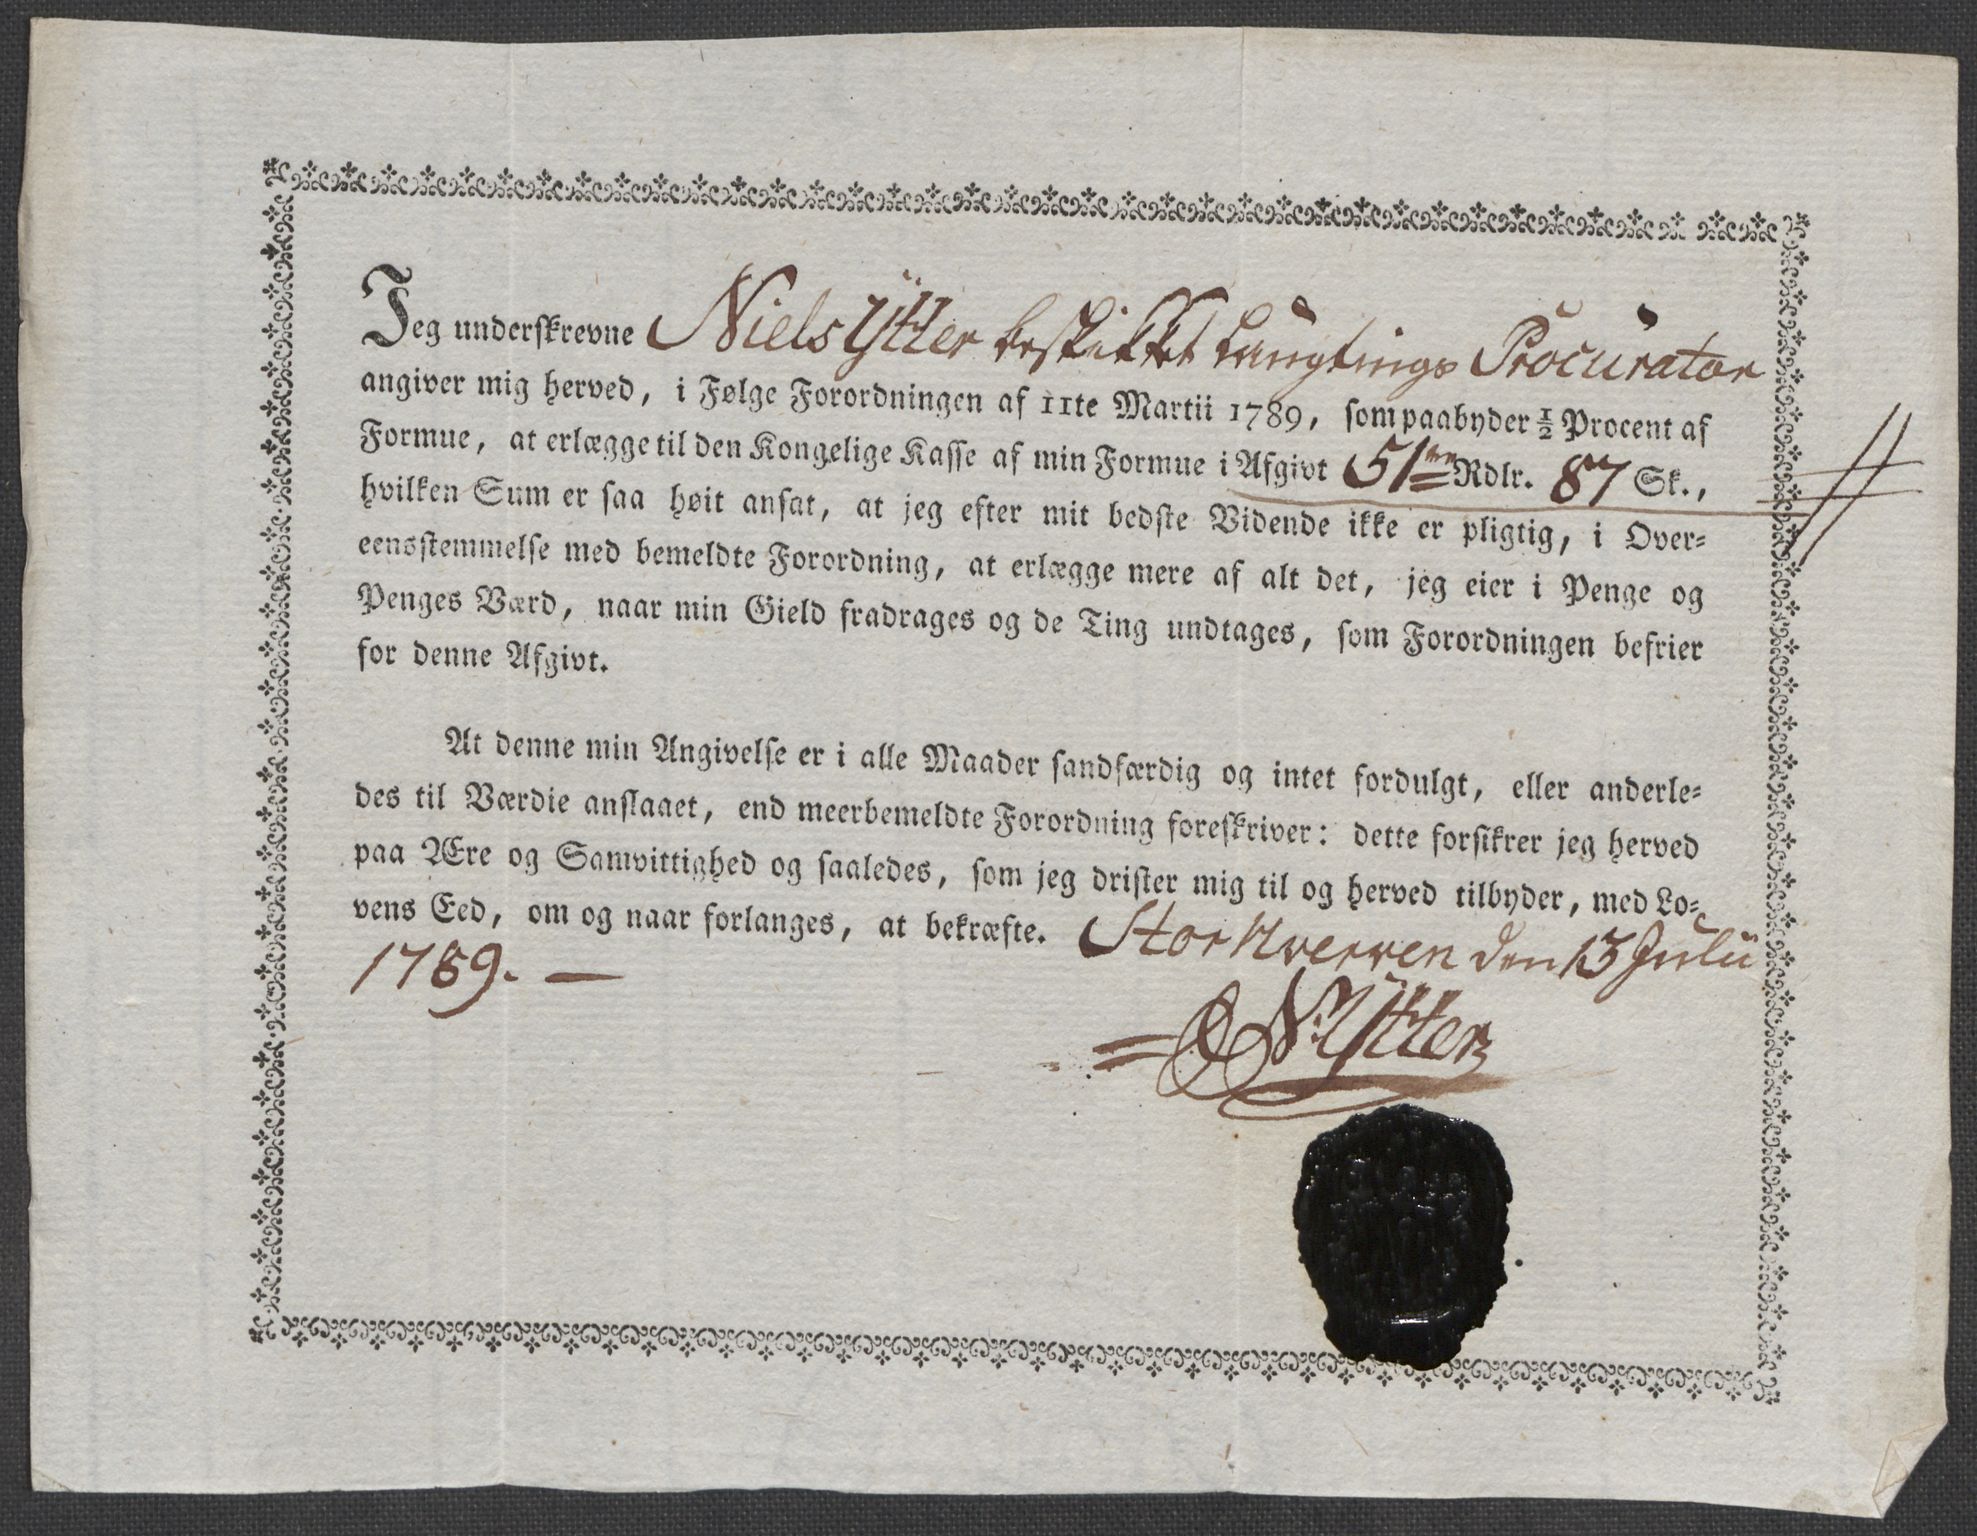 Jeg underskrevne Niels Ytter beskikket Laugtings Procurator
angiver mig herved, i Følge Forordningen af 11te Martii 1789, som paabyder ½ Procent af
Formue, at erlægge til den Kongelige Kasse af min Formue i Afgivt 51 Rdlr. 87 Sk.,
hvilken Sum er saa høit ansat, at jeg efter mit bedste Vidende ikke er pligtig, i Over-
eensstemmelse med bemeldte Forordning, at erlægge mere af alt det, jeg eier i Penge og
Penges Værd, naar min Gield fradrages og de Ting undtages, som Forordningen befrier
for denne Afgivt.
At denne min Angivelse er i alle Maader sandfærdig og intet fordulgt, eller anderle-
des til Værdie anslaaet, end meerbemeldte Forordning foreskriver: dette forsikrer jeg herved
paa Ære og Samvittighed og saaledes, som jeg drister mig til og herved tilbyder, med Lo-
vens Eed, om og naar forlanges, at bekræfte. den 13 Julii
1789. —
N: Ytter